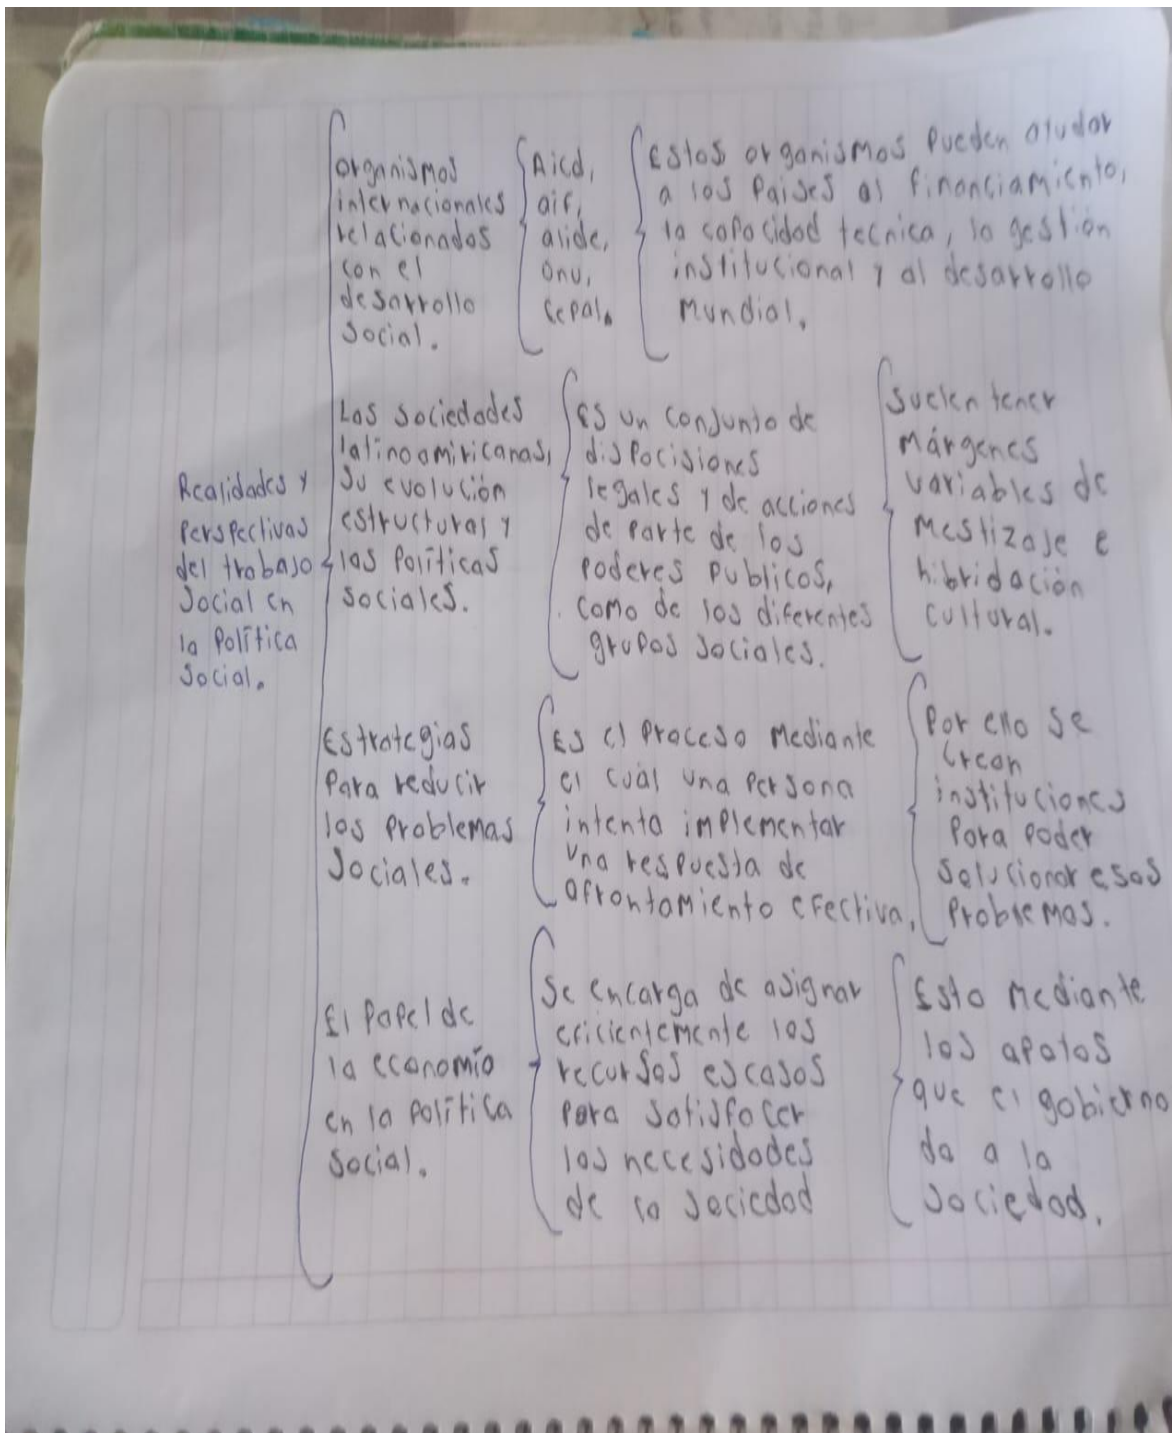 Realidades y
Perspectivas
del trabajo
Social en
la Política
Social.
organismos
internacionales
relacionados
con el
desarrollo
Social.
Aicd,
aif,
alide,
onu,
cepal.
Estos organismos Pueden atudar
a los Paises al financiamiento,
la capacidad tecnica, la gestión
institucional y al desarrollo
Mundial.
Las sociedades
latinoamiricanas,
Su evolución
estructural y
las Políticas
sociales.
Es un conjunto de
dispocisiones
legales y de acciones
de parte de los
Poderes Publicos,
como de los diferentes
grupos sociales.
Suelen tener
Márgenes
variables de
Mestizaje e
hibridación
cultural.
Estrategias
Para reducir
los Problemas
Sociales.
Es el Proceso Mediante
el cuál una Persona
intenta implementar
una respuesta de
afrontamiento efectiva,
Por ello Se
crean
instituciones
Para Poder
Solucionar esos
Problemas.
El Papel de
la economía
en la Política
Social.
Se encarga de asignar
eficientemente los
recursos escasos
Para Satisfacer
las necesidades
de la Sociedad
Esto Mediante
los apotos
que el gobierno
da a la
Sociedad.